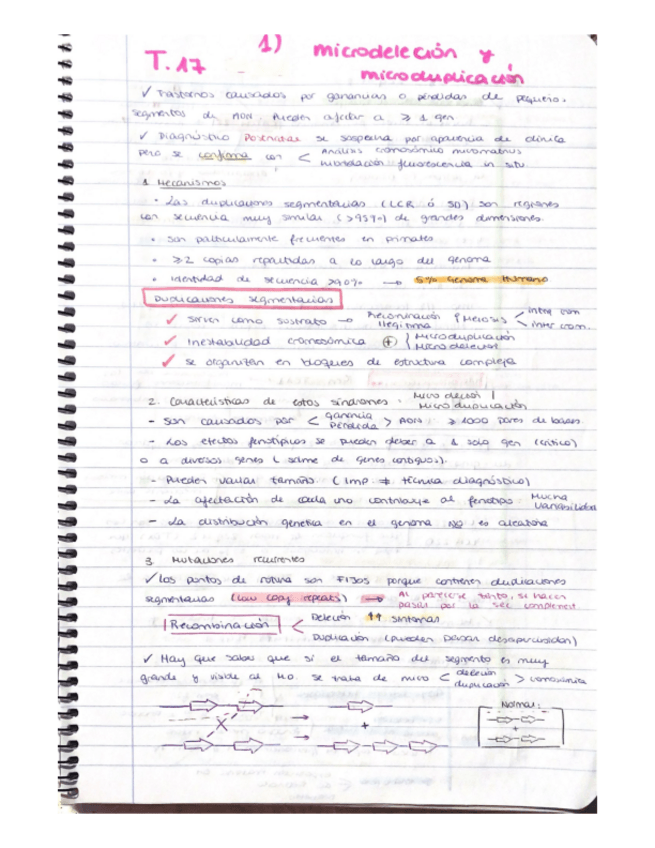 T.17
1) microdeleción y
microduplicación
✓ Trastornos causados por ganancias o pérdidas de pequeño.
segmentos de ADN. Pueden afectar a ≥ 1 gen
✓ Diagnóstico Posnatal: se sospecha por apariencia de clínica
pero se confirma con < Análisis cromosómico
hibridación fluorescencia in situ
1. Mecanismos
• Las duplicaciones segmentarias (LCR ó SD) son regiones
con secuencia muy similar (>95%) de grandes dimensiones.
• Son particularmente frecuentes en primates
• ≥2 copias repartidas a lo largo del genoma
• Identidad de secuencia >90% → 5% Genoma Humano
Duplicaciones segmentarias
✓ Sirven como sustrato → Recominación ilegítima (Meiosis < intra crom
inter crom.
✓ Inestabilidad cromosómica (+) Microduplicación
Microdeleción
✓ Se organizan en bloques de estructura compleja
2. Características de estos síndromes: Micro deleción
Micro duplicación
- Son causados por < ganancia
pérdida > ADN ≥ 1000 pares de bases.
- Los efectos fenotípicos se pueden deber a 1 solo gen (crítico)
o a diversos genes ( sdme de genes contiguos).
- Pueden variar tamaño (Imp ≠ técnica diagnóstico)
- La afectación de cada uno contribuye al fenotipo. Mucha
variabilidad
- La distribución genética en el genoma NO es aleatoria
3. Mutaciones recurrentes
✓ los puntos de rotura son FIJOS porque contienen duplicaciones
segmentarias (low copy repeats) → Al parecerse tanto, se hacen
pasar por la sec complement.
Recombinación < Deleción ↑↑ síntomas
Duplicación (pueden pasar desapercibidas)
✓ Hay que saber que si el tamaño del segmento es muy
grande y visible al M.O. se trata de micro < deleción
duplicación > cromosómica
Normal:
+
+